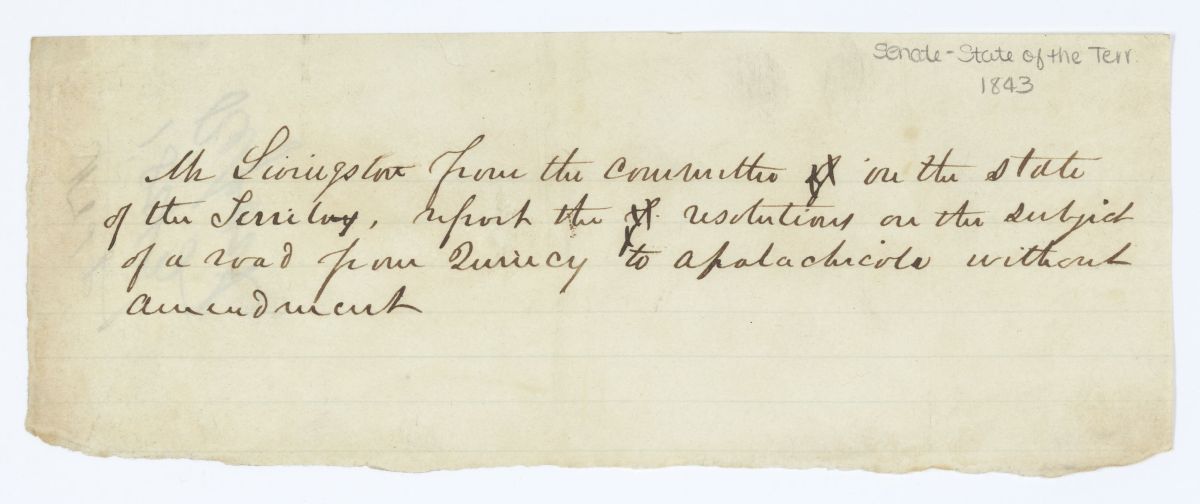 Senate - State of the Terr.
1843
Mr Livingston from the committee on the state
of the Territory, report the resolutions on the subject
of a road from Quincy to apalachicola without
amendment